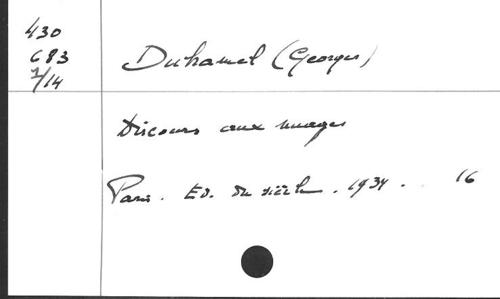 430
683
2/14
Duhamel (Georges)
Discours aux nuages
Paris. Ed. du siècle. 1934. 16